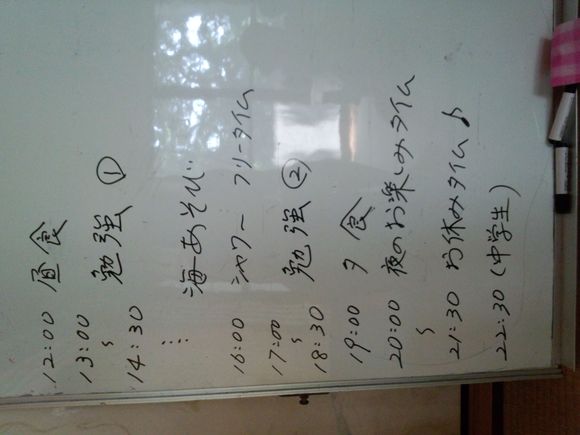 12:00 昼食
13:00 勉強①
〜
14:30
⋮ 海あそび⋮
16:00 シャワー フリータイム
17:00 勉強②
〜
18:30
19:00 夕食
20:00 夜のお楽しみタイム
〜
21:30 お休みタイム♪
22:30 (中学生)